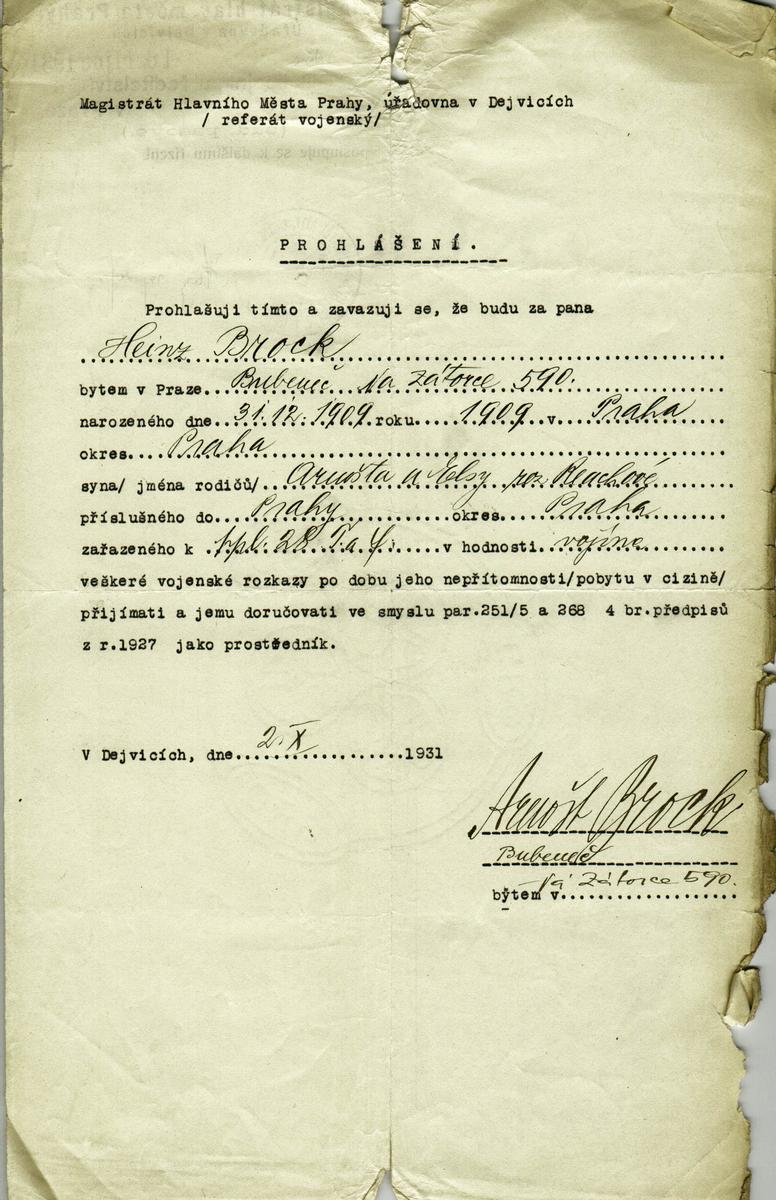 Magistrát Hlavního Města Prahy, úřadovna v Dejvicích
/ referát vojenský/
PROHLÁŠENÍ.
Prohlašuji tímto a zavazuji se, že budu za pana
Heinz Brock
bytem v Praze Bubeneč Na Zátorce 590.
narozeného dne 31.12.1909 roku 1909 v Praha
okres Praha
syna/ jména rodičů/ Arnošta a Elsy roz Reachové
příslušného do Prahy okres Praha
zařazeného k 28 v hodnosti vojína
veškeré vojenské rozkazy po dobu jeho nepřítomnosti/pobytu v cizině/
přijímati a jemu doručovati ve smyslu par.251/5 a 268 4 br.předpisů
z r.1927 jako prostředník.
V Dejvicích, dne 2.X 1931
Arnošt Brock
Bubeneč
Na Zátorce 590.
bytem v